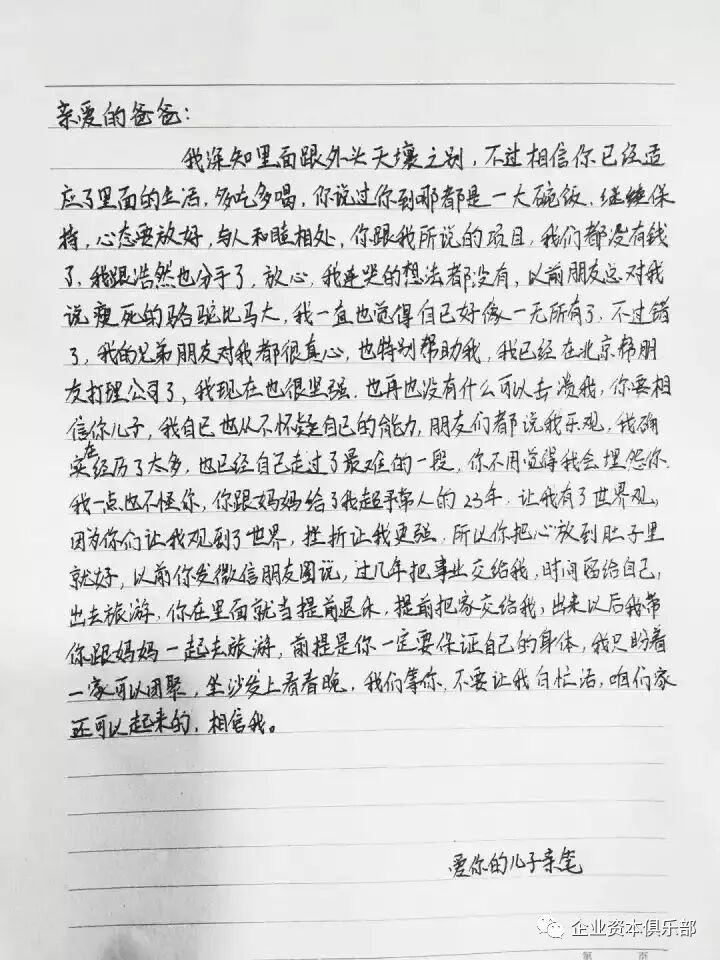 亲爱的爸爸:
我深知里面跟外头天壤之别,不过相信你已经适
应了里面的生活,多吃多喝,你说过你到哪都是一大碗饭,继续保
持,心态要放好,与人和睦相处,你跟我所说的项目,我们都没有钱
了,我跟浩然也分手了,放心,我连哭的想法都没有,以前朋友总对我
说瘦死的骆驼比马大,我一直也觉得自己好像一无所有了,不过错
了,我的兄弟朋友对我都很真心,也特别帮助我,我已经在北京帮朋
友打理公司了,我现在也很坚强,也再也没有什么可以击溃我,你要相
信你儿子,我自己也从不怀疑自己的能力,朋友们都说我乐观,我确
实在经历了太多,也已经自己走过了最难的一段,你不用觉得我会埋怨你
我一点也不怪你,你跟妈妈给了我超乎常人的23年,让我有了世界观,
因为你们让我观到了世界,挫折让我更强,所以你把心放到肚子里
就好,以前你发微信朋友圈说,过几年把事业交给我,时间留给自己,
出去旅游,你在里面就当提前退休,提前把家交给我,出来以后我带
你跟妈妈一起去旅游,前提是你一定要保证自己的身体,我只盼着
一家可以团聚,坐沙发上看春晚,我们等你,不要让我白忙活,咱们家
还可以起来的,相信我。
爱你的儿子亲笔
企业资本俱乐部
第 页